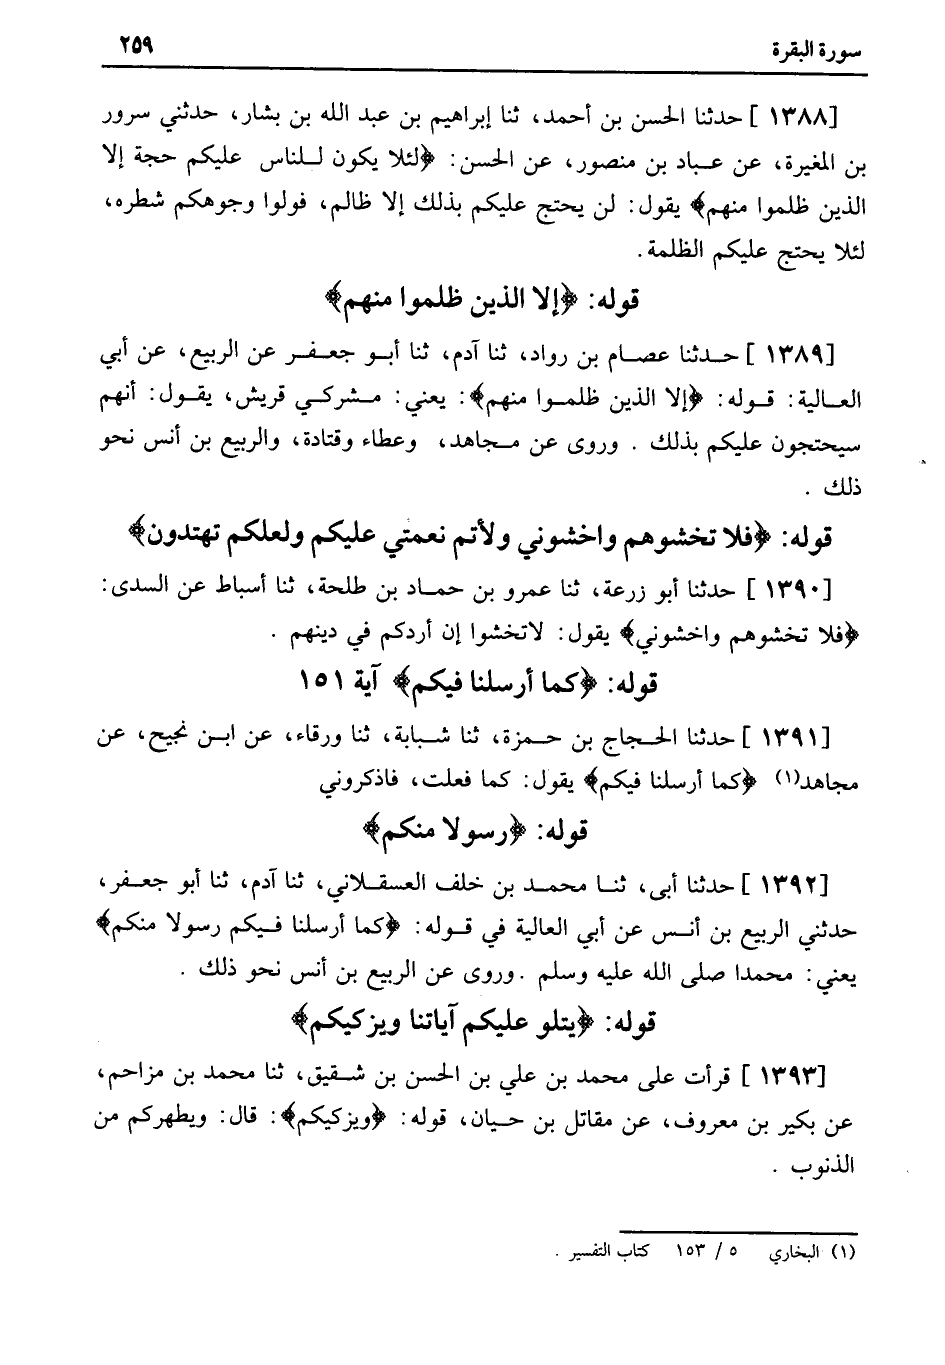 سورة البقرة ٢٥٩
[١٣٨٨] حدثنا الحسن بن أحمد، ثنا إبراهيم بن عبد الله بن بشار، حدثني سرور
بن المغيرة، عن عباد بن منصور، عن الحسن: ﴿لئلا يكون للناس عليكم حجة إلا
الذين ظلموا منهم﴾ يقول: لن يحتج عليكم بذلك إلا ظالم، فولوا وجوهكم شطره،
لئلا يحتج عليكم الظلمة.
قوله: ﴿إلا الذين ظلموا منهم﴾
[١٣٨٩] حدثنا عصام بن رواد، ثنا آدم، ثنا أبو جعفر عن الربيع، عن أبي
العالية: قوله: ﴿إلا الذين ظلموا منهم﴾: يعني: مشركي قريش، يقول: أنهم
سيحتجون عليكم بذلك . وروى عن مجاهد، وعطاء وقتادة، والربيع بن أنس نحو
ذلك .
قوله: ﴿فلا تخشوهم واخشوني ولأتم نعمتي عليكم ولعلكم تهتدون﴾
[١٣٩٠] حدثنا أبو زرعة، ثنا عمرو بن حماد بن طلحة، ثنا أسباط عن السدى:
﴿فلا تخشوهم واخشوني﴾ يقول: لاتخشوا إن أردكم في دينهم .
قوله: ﴿كما أرسلنا فيكم﴾ آية ١٥١
[١٣٩١] حدثنا الحجاج بن حمزة، ثنا شبابة، ثنا ورقاء، عن ابن نجيح، عن
مجاهد(١) ﴿كما أرسلنا فيكم﴾ يقول: كما فعلت، فاذكروني
قوله: ﴿رسولا منكم﴾
[١٣٩٢] حدثنا أبى، ثنا محمد بن خلف العسقلاني، ثنا آدم، ثنا أبو جعفر،
حدثني الربيع بن أنس عن أبي العالية في قوله: ﴿كما أرسلنا فيكم رسولا منكم﴾
يعني: محمدا صلى الله عليه وسلم .وروى عن الربيع بن أنس نحو ذلك .
قوله: ﴿يتلو عليكم آياتنا ويزكيكم﴾
[١٣٩٣] قرأت على محمد بن علي بن الحسن بن شقيق، ثنا محمد بن مزاحم،
عن بكير بن معروف، عن مقاتل بن حيان، قوله: ﴿ويزكيكم﴾: قال: ويطهركم من
الذنوب .
(١) البخاري ٥ / ١٥٣ كتاب التفسير .